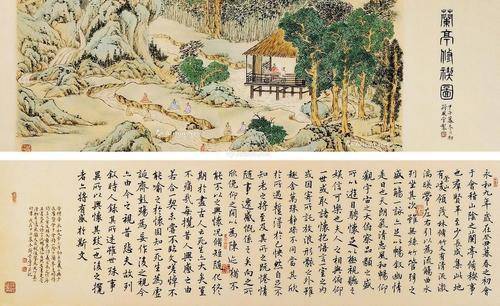 蘭亭修禊圖
永和九年歲在癸丑暮春之初
于會稽山陰之蘭亭脩禊事
也群賢畢至少長咸集此地
有崇領茂林脩竹又有清流激
湍暎帶左右引以為流觴曲水
列坐其次雖無絲竹管絃之
盛一觴一詠亦足以暢敘幽情
是日也天朗氣清惠風和暢仰
觀宇宙之大俯察品類之盛
所以遊目騁懷足以極視聽之
娛信可樂也夫人之相與俯仰
一世或取諸懷抱悟言一室之內
或因寄所託放浪形骸之外雖
趣舍萬殊靜躁不同當其欣
於所遇暫得於己快然自足不
知老之將至及其所之既惓情
隨事遷感慨係之矣向之所
欣俛仰之間以為陳迹猶不
能不以之興懷況脩短隨化終
期於盡古人云死生亦大矣豈
不痛哉每攬昔人興感之由
若合一契未嘗不臨文嗟悼不
能喻之於懷固知一死生為虛
誕齊彭殤為妄作後之視今
亦由今之視昔悲夫故列
敘時人錄其所述雖世殊事
異所以興懷其致一也後之攬
者亦將有感於斯文